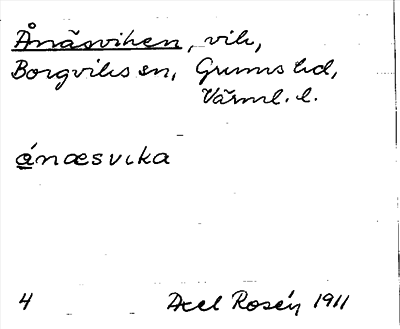 Ånäsviken, vik,
Borgviks sn, Grums hd,
Värml. l.
ånæsvika
4 Axel Rosén 1911